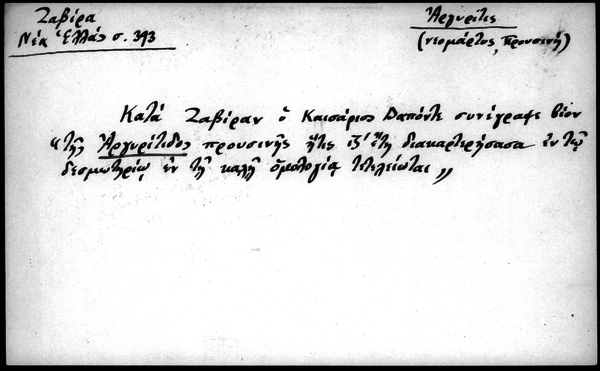 Ζαβίρα
Νέα Ἑλλάς σ. 393
Ἀργυρίτις
(νεομάρτυς, Προυσινή)
Κατὰ Ζαβίραν ὁ Καισάριος Δαπόντε συνέγραψε βίον
“τῆς Ἀργυρίτιδος προυσινῆς ἥτις ιζ′ ἔτη διακαρτερήσασα ἐν τῷ
δεσμωτηρίῳ ἐν τῇ καλῇ ὁμολογίᾳ τετελείωται„